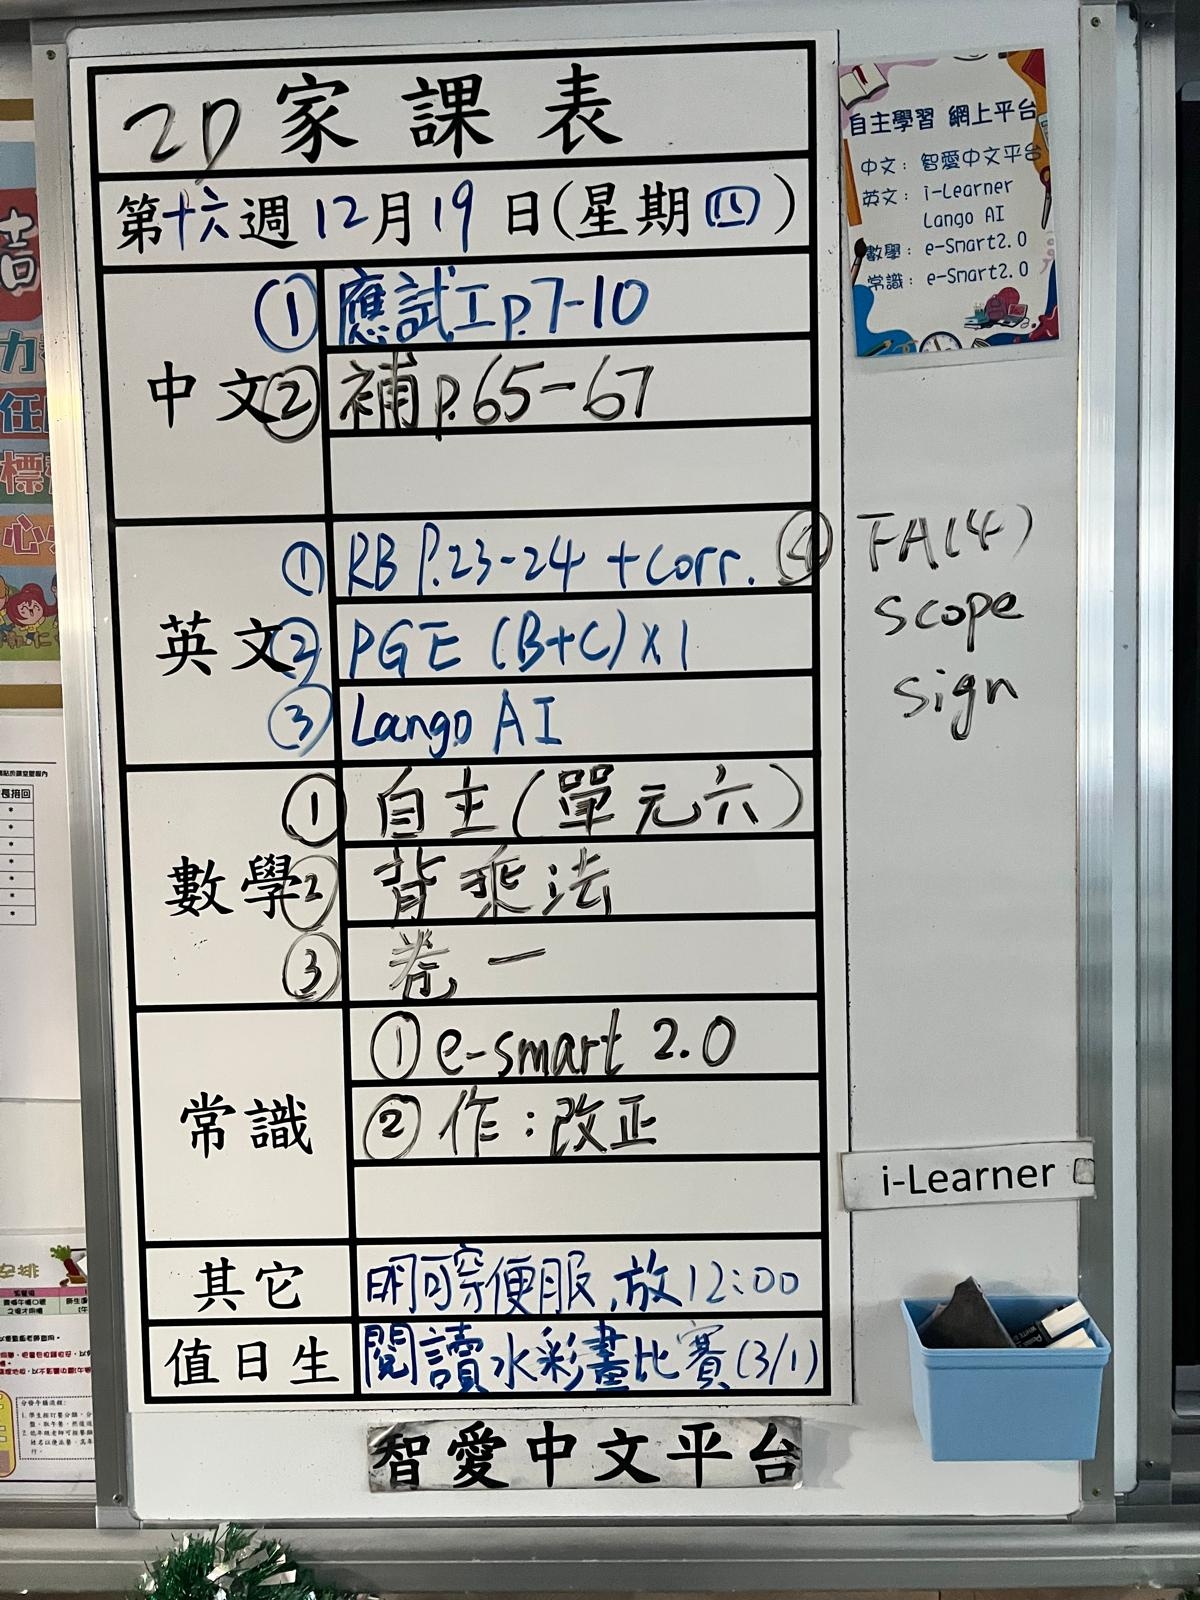 2D 家課表
第十六週 12月19日(星期四)
中文
① 應試工p.7-10
② 補p.65-67
英文
① RB P.23-24 +corr.
② PGE (B+C)x1
③ Lango AI
④ FA(4)
scope
sign
數學
① 自主(單元六)
② 背乘法
③ 卷一
常識
① e-smart 2.0
② 作:改正
其它
明可穿便服,放12:00
值日生
閱讀水彩畫比賽(3/1)
智愛中文平台
自主學習 網上平台
中文: 智愛中文平台
英文: i-Learner
Lango AI
數學: e-Smart2.0
常識: e-Smart2.0
i-Learner
力
任
標
心